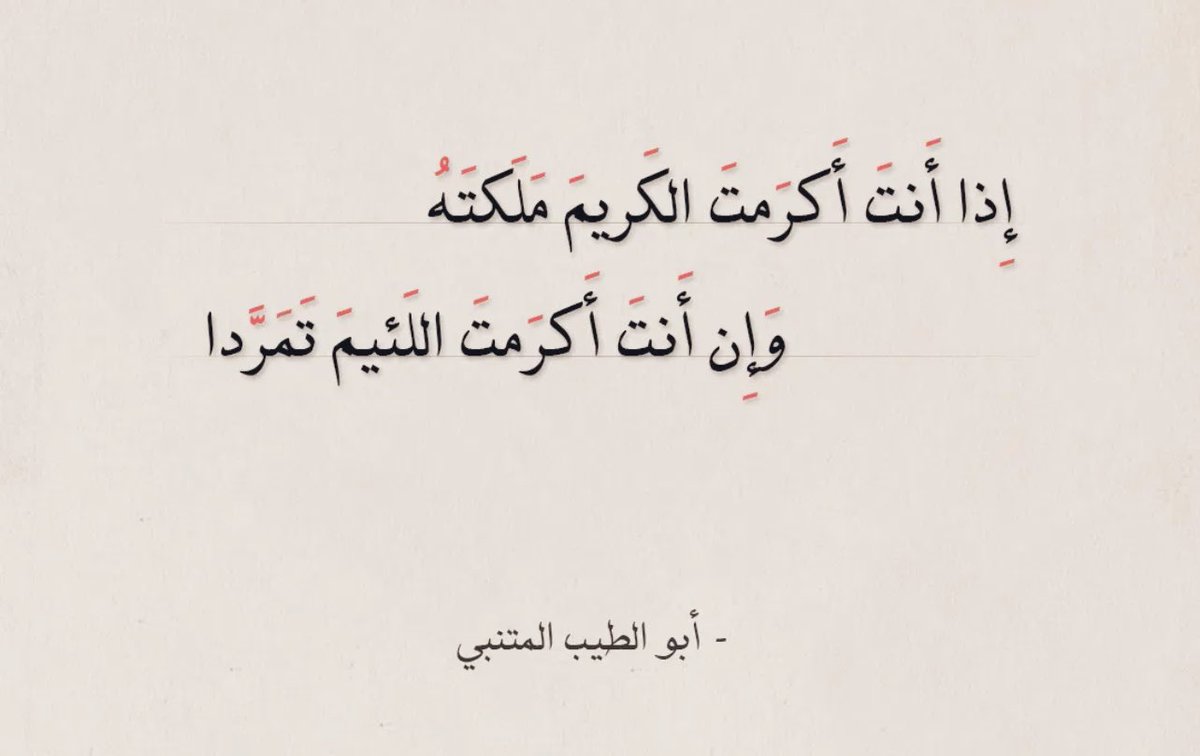 إِذا أَنتَ أَكرَمتَ الكَريمَ مَلَكتَهُ
وَإِن أَنتَ أَكرَمتَ اللَئيمَ تَمَرَّدا
- أبو الطيب المتنبي